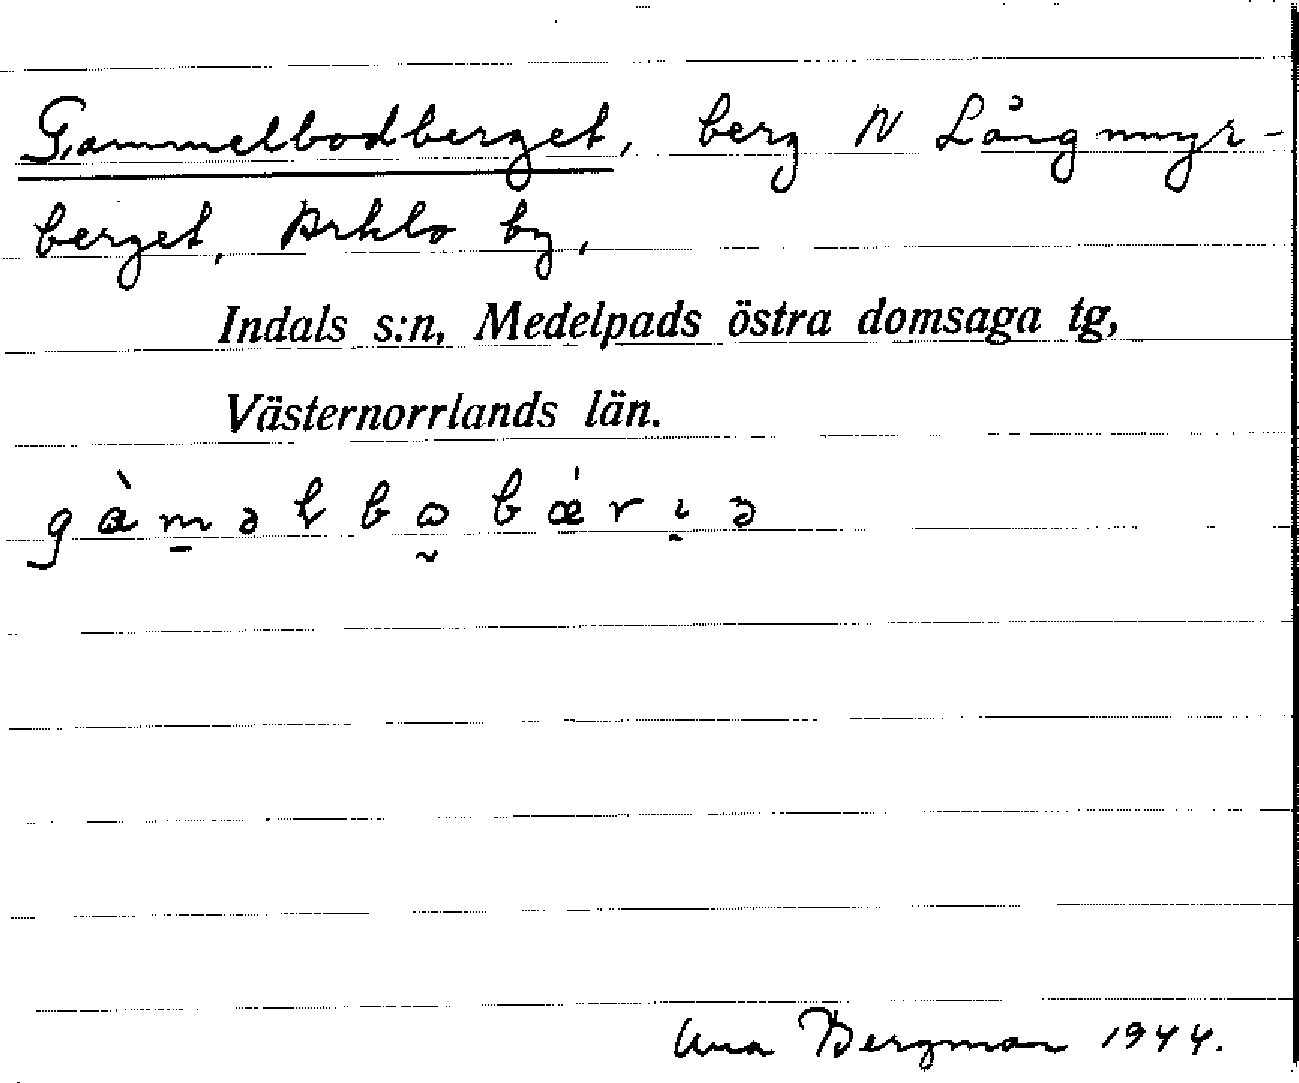 Gammelbodberget, berg N Långmyr-
berget, Arklo by,
Indals s:n, Medelpads östra domsaga tg,
Västernorrlands län.
Bergman 1944.